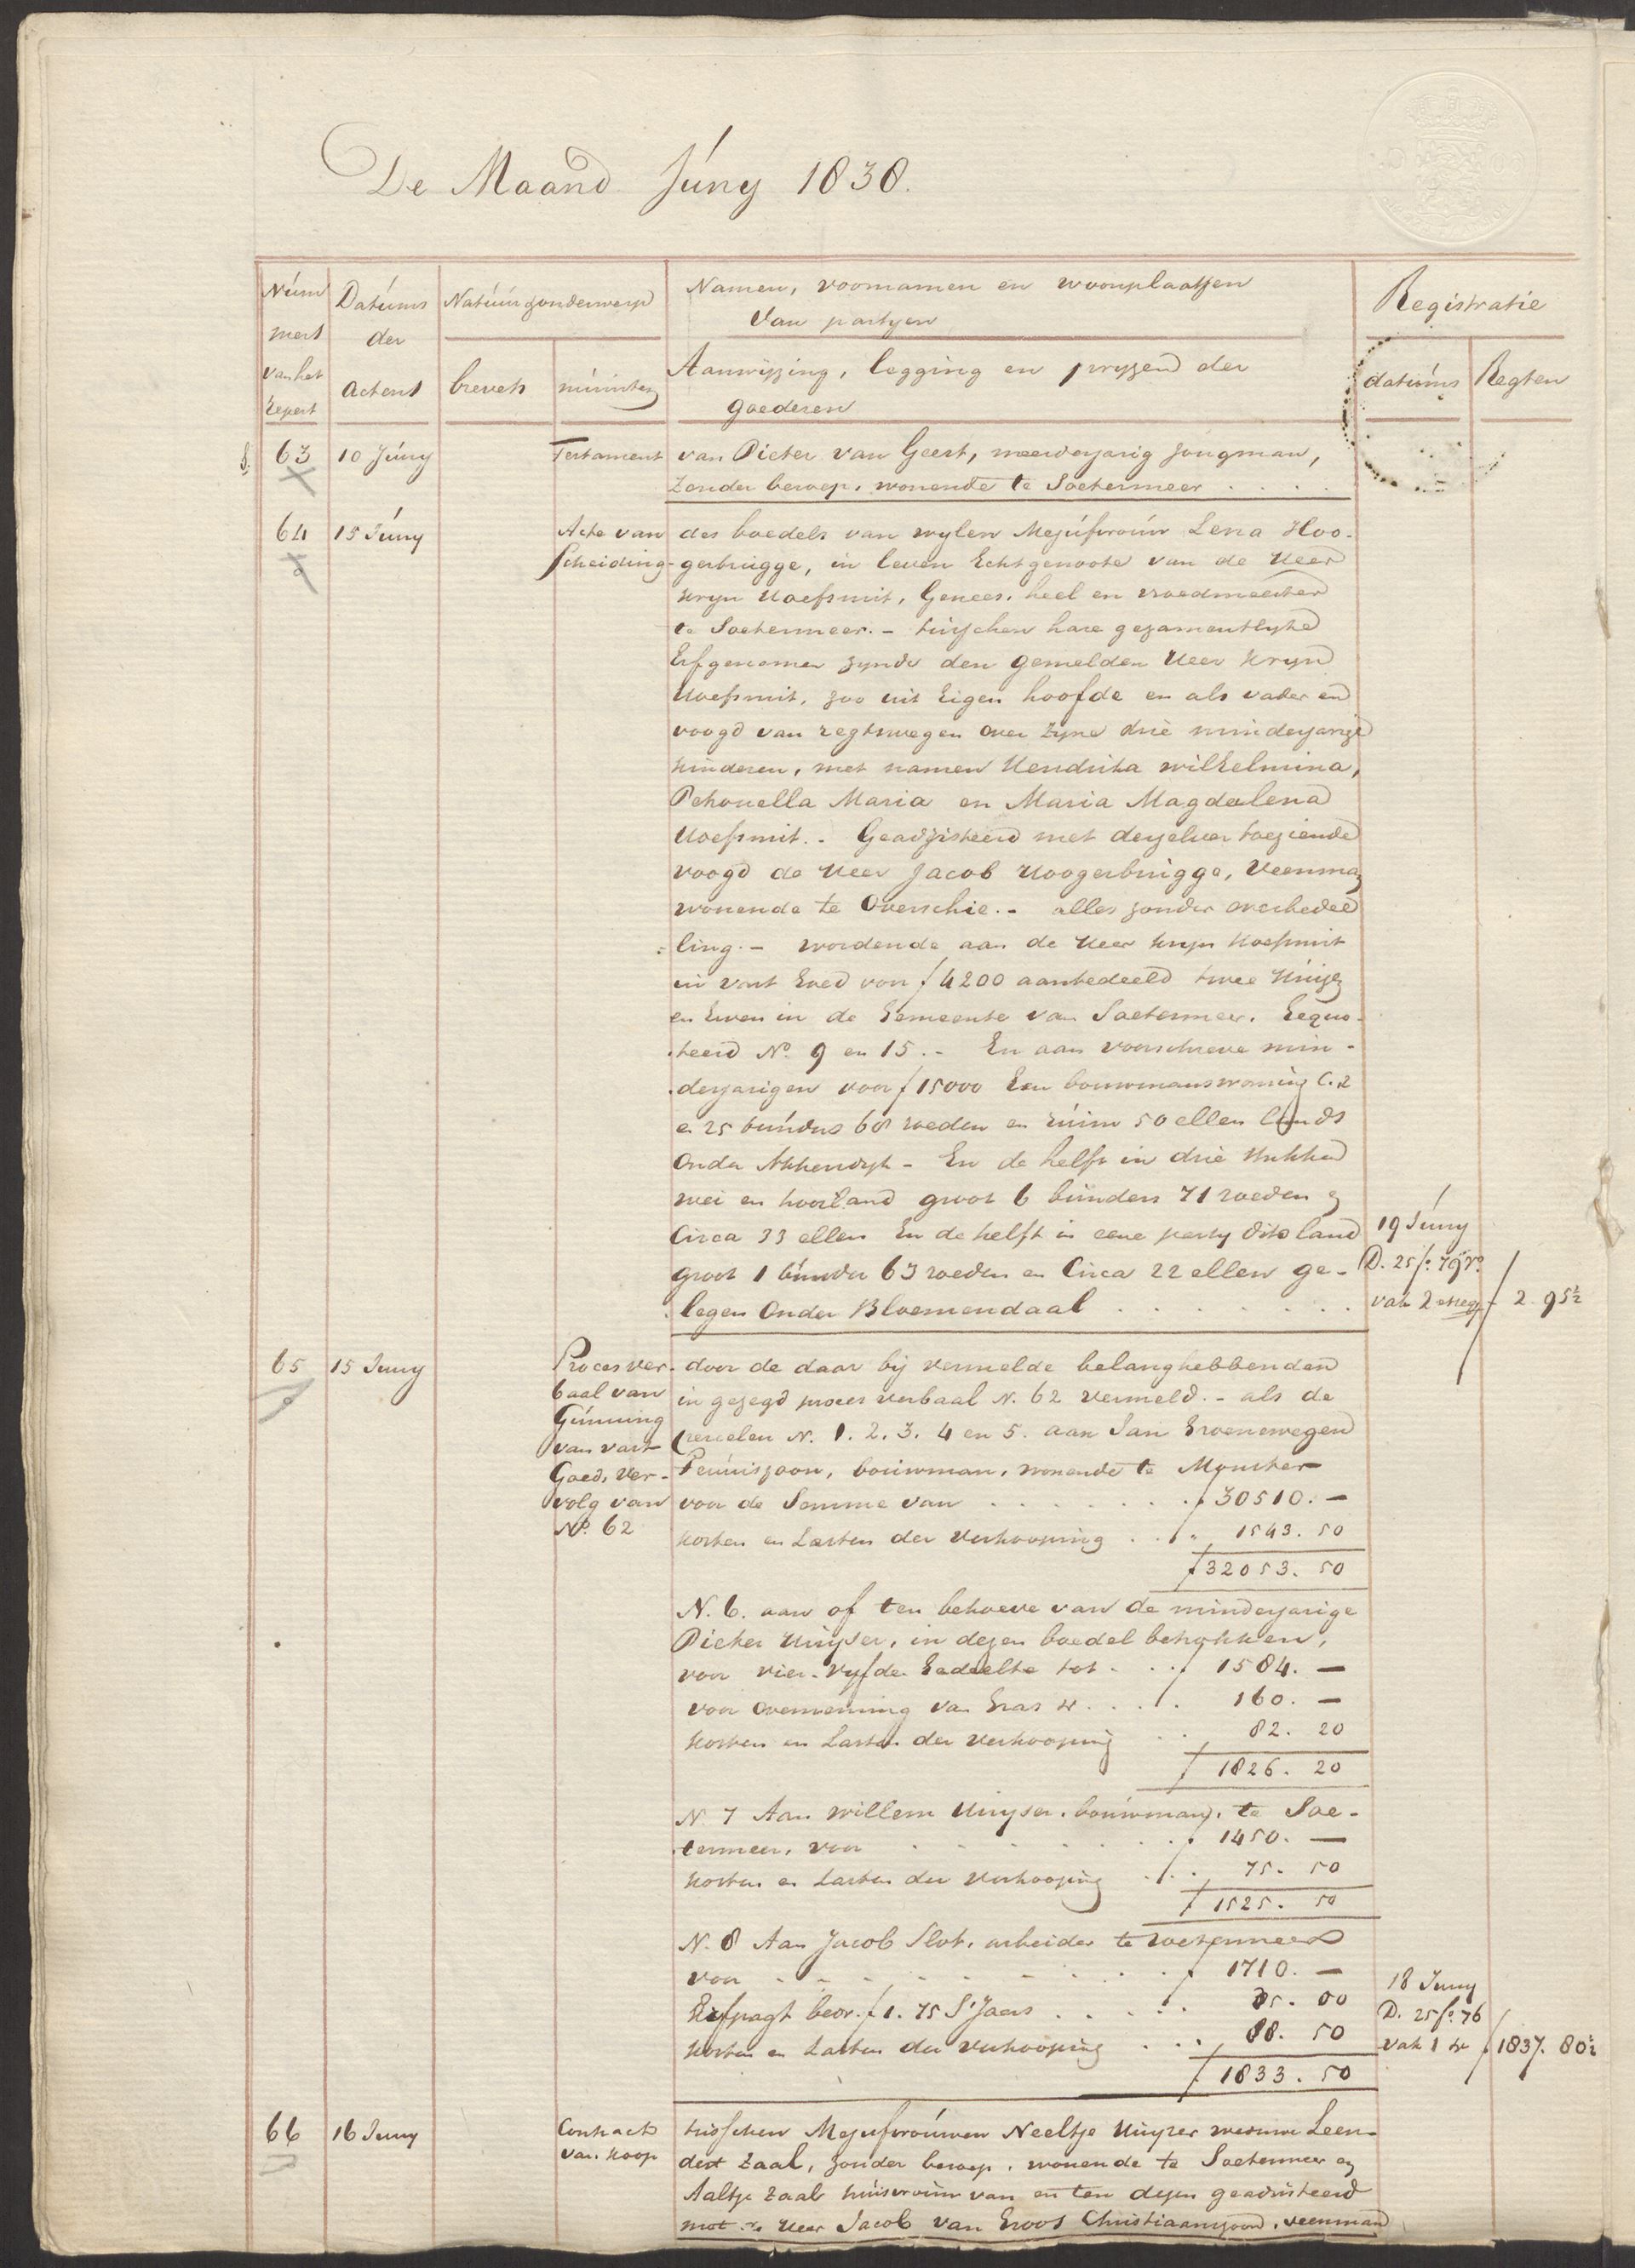 De Maand Júny 1838.
Núm
mers
van het
Repert
Datúms
der
Actens
Natúúr & onderwerp
brevets
minúten
Namen, voornamen en woonplaatsen
Van partyen
Aanwyzing, legging en pryzen der
goederen
Registratie
datúms
Regten
63 10 Júny Testament van Pieter van Geest, meerderjarig Jongman,
zonder beroep, wonende te Soetermeer . . . .
64 15 Júny Acte van des boedels van wylen Mejúfvroúw Lena Hoo-
Scheiding gerbrugge, in leven Echtgenoote van de Heer
Kryn Hoefsmit, Genees, heel en vroedmeester
te Soetermeer. - tússchen hare gezamentlyke
Erfgenomen zynde den gemelden Heer Kryn
Hoefsmit, zoo uit Eigen hoofde en als vader en
voogd van regtswegen over zyne drie minderjarige
kinderen, met namen Hendrika Wilhelmina,
Petronella Maria en Maria Magdalena
Hoefsmit. - Geadsisteerd met derzelver toeziende
voogd de Heer Jacob Hoogerbrúgge, Veenman
wonende te Overschie. - alles zonder overbedee
ling. - wordende aan de Heer Kryn Hoefsmit
in vast Goed voor ƒ 4200 aanbedeeld twee Húize
en Erven in de Gemeente van Soetermeer. Gequo-
teerd No. 9 en 15. - En aan voorschreve min-
derjarigen voor ƒ 15000 Een bouwmanswoning C. 2
en 25 búnders 68 roeden en rúim 50 ellen lands
Onder Nkkendyk - En de helft in drie stukken
wei en hooiland groot 6 búnders 71 roeden en
Circa 33 ellen En de helft in eene party dito land
groot 1 búnder 63 roeden en Circa 22 ellen ge-
legen Onder Bloemendaal . . . . . . . .
19 Júny
D. 25 fo. 79 vo.
vak 2 ƒ 2. 95½
65 15 Juny Proces ver- door de daar bij vermelde belanghebbenden
baal van in gezegd proces verbaal N. 62 vermeld. - als de
Gúnning perceelen N. 1. 2. 3. 4 en 5. aan Jan Groenewegen
van vast
Goed, ver- Teúniszoon, boúwman, wonende te Monster
volg van voor de Somme van . . . . . . . ƒ 30510. -
No. 62
Kosten en Lasten der Verkooping . . " 1543. 50
ƒ 32053. 50
N. 6. aan of ten behoeve van de minderjarige
Pieter Huyser, in dezen boedel betrokken,
voor vier-vyfde Gedeelte tot . . . ƒ 1584. -
voor overneming van Gras &c. . . . 160. -
Kosten en Lasten der Verkooping . . 82. 20
ƒ 1826. 20
N. 7 Aan Willem Huyser, boúwman, te Soe-
termeer, voor . . . . . . . . ƒ 1450. -
Kosten en Lasten der Verkooping . . 75. 50
ƒ 1525. 50
N. 8 Aan Jacob Slot, arbeider te Zoetermeer
voor . . . . . . . . . . ƒ 1710. -
Erfpagt beor. ƒ 1. 75 S'Jaars . . . . 35. 00
Kosten en Lasten der Verkooping . . . 88. 50
ƒ 1833. 50
18 Juny
D. 25 fo. 76
vak 1 &c ƒ 1837. 80½
66 16 Juny Contract tússchen Mejufvroúwen Neeltje Huyzer weduwe Leen-
van Koop dert Zaal, zonder beroep, wonende te Soetermeer en
Aaltje Zaal húisvroúw van en ten dezen geadsisteerd
met de Heer Jacob van Groos Christiaanszoon, veenman